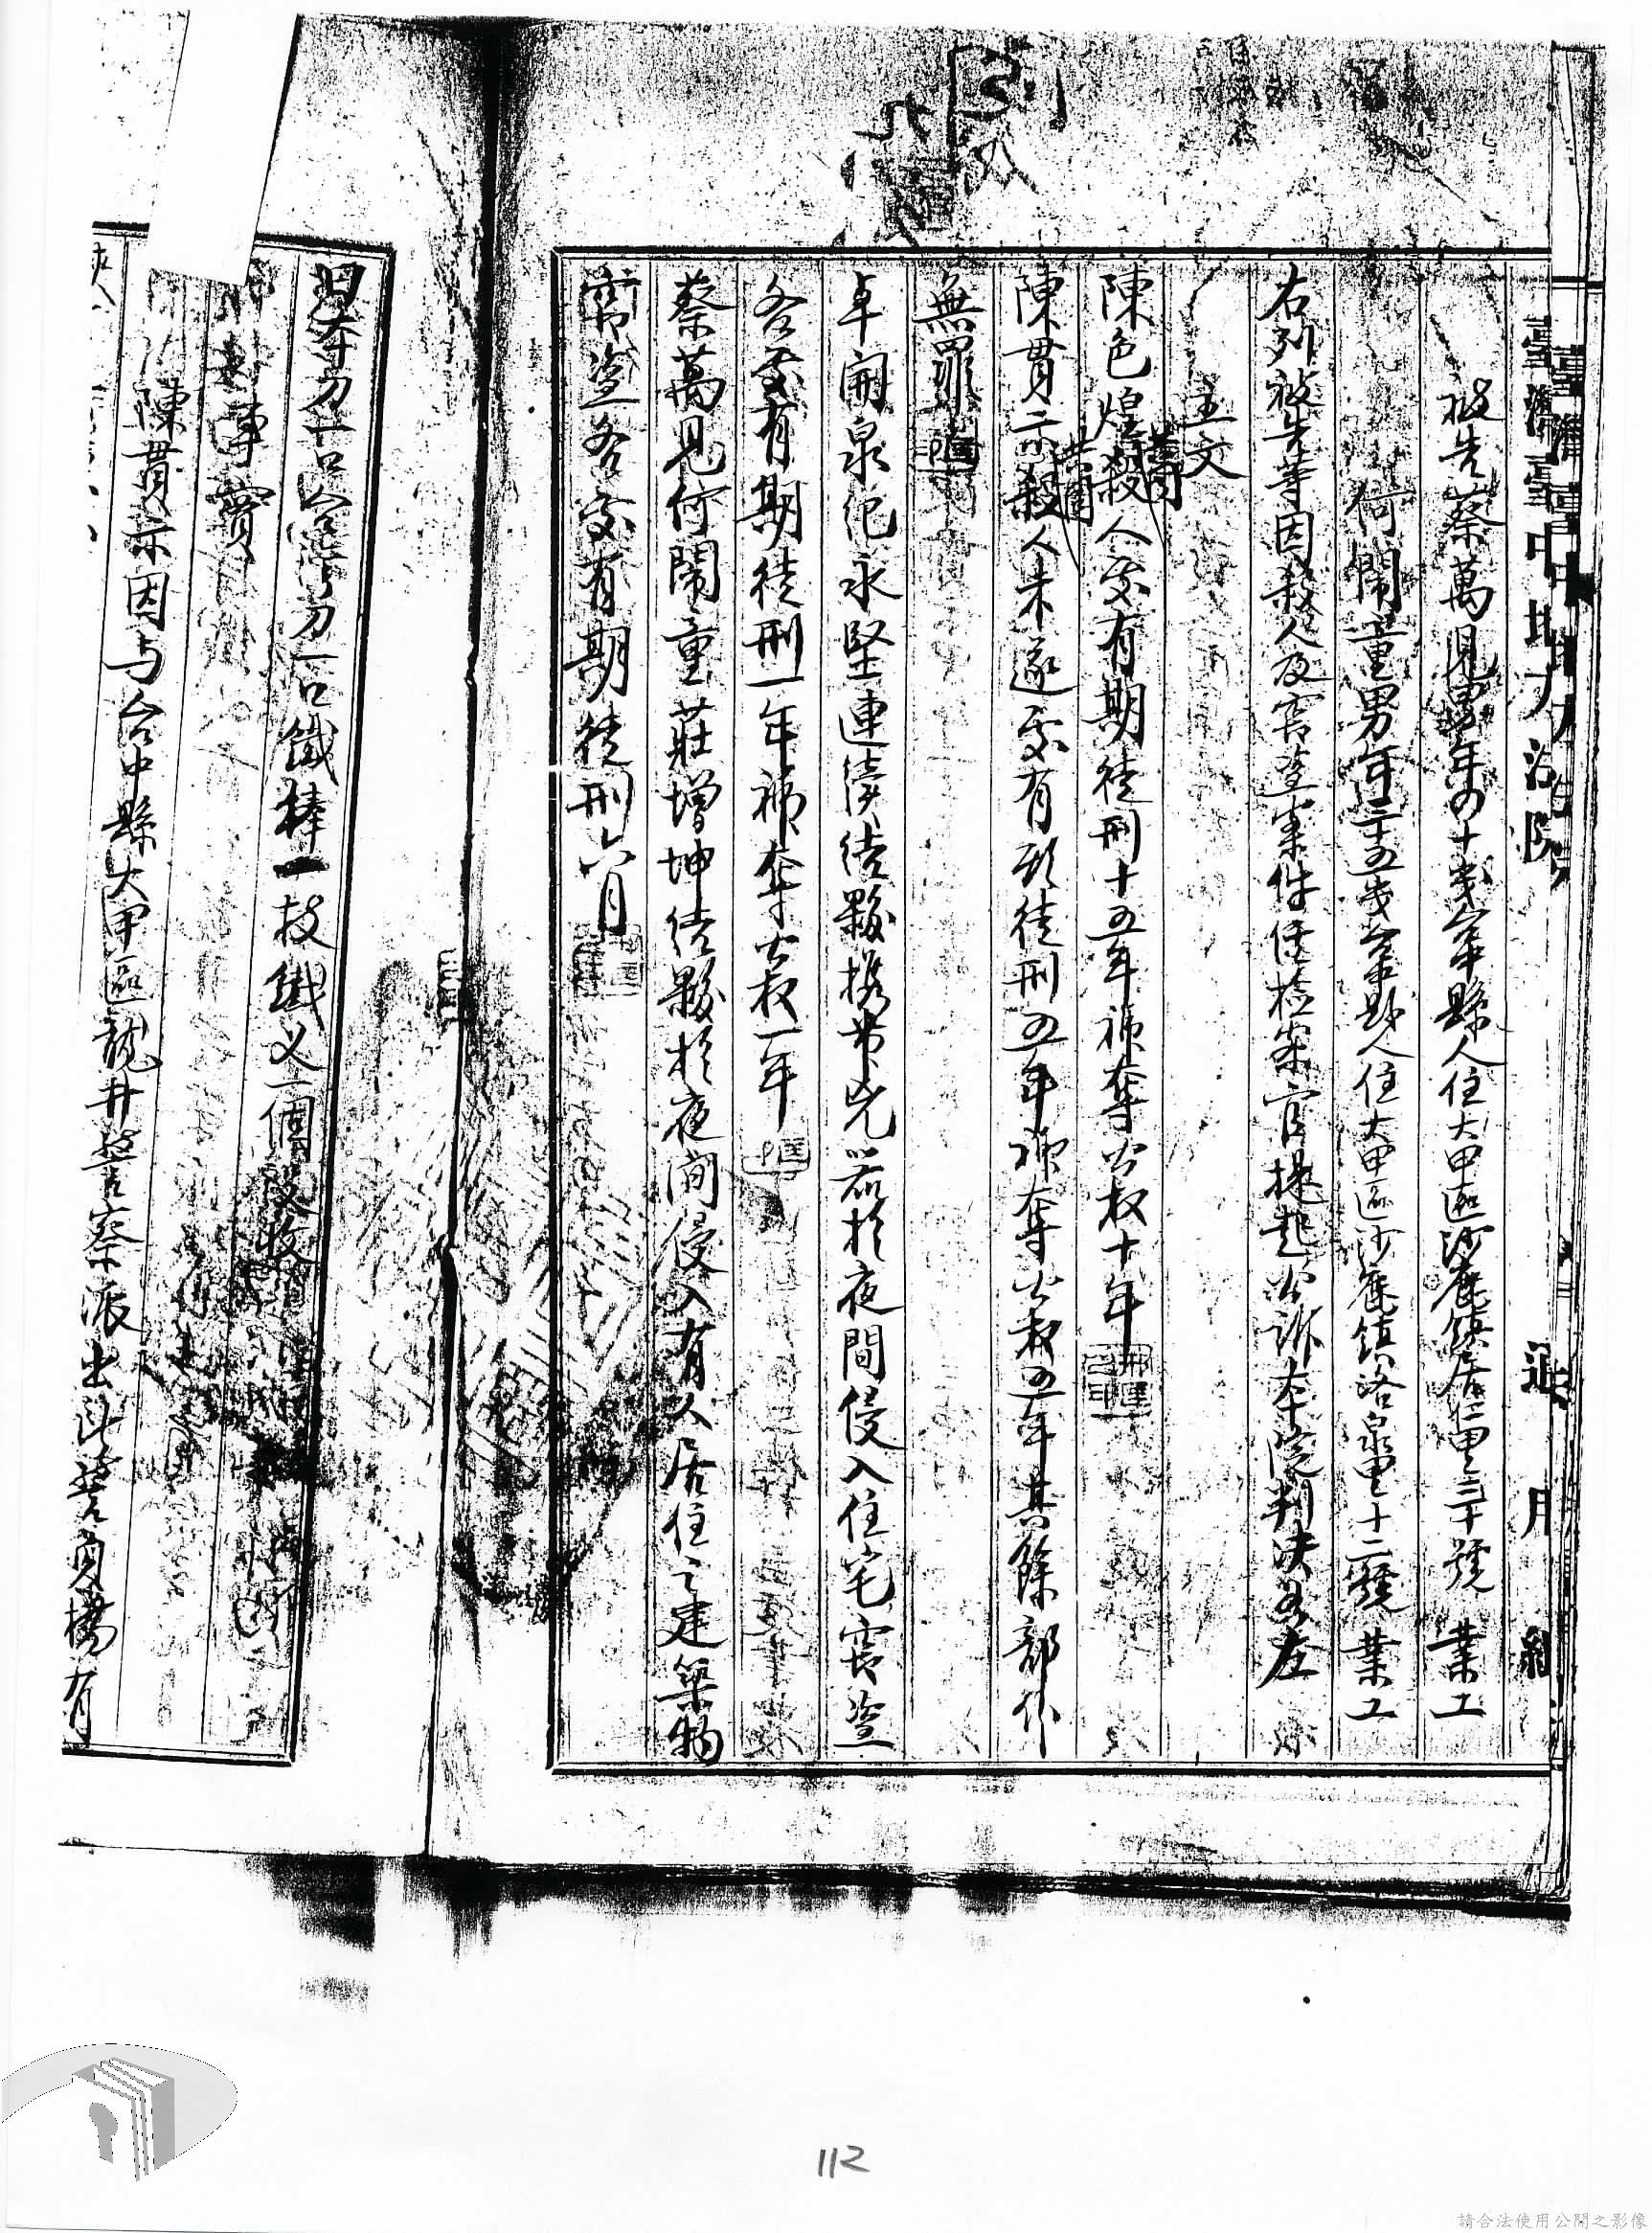 臺灣臺中地方法院
被告蔡萬見男年四十歲台中縣人住大甲區沙鹿鎮居仁里三十號 業工
何鬧童男年三十五歲台中縣人住大甲區沙鹿鎮洛泉里十二號 業工
右列被告等因殺人及竊盜案件經檢察官提起公訴本院判決如左
主文
陳色煌共同殺人處有期徒刑十五年褫奪公權十年
陳貫示共同殺人未遂處有期徒刑五年褫奪公權五年其餘部份
無罪
卓開泉紀永堅連續結夥携帶兇器於夜間侵入住宅竊盜
各處有期徒刑一年褫奪公權一年
蔡萬見何鬧童莊增坤結夥於夜間侵入有人居住之建築物
竊盜各處有期徒刑六月
刀一口刀一口鐵棒一枝鐵义一個沒收
事實
陳貫示因与台中縣大甲區龍井警察派出所警員楊有
112
請合法使用公開之影像